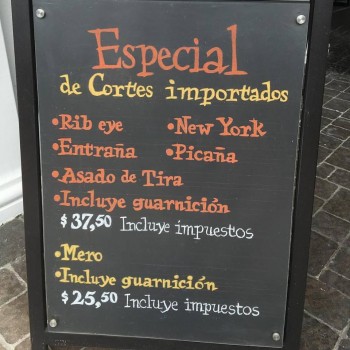 Especial
de Cortes importados
•Rib eye •New York
•Entraña •Picaña
•Asado de Tira
•Incluye guarnición
$ 37,50 Incluye impuestos
•Mero
•Incluye guarnición
$ 25,50 Incluye impuestos